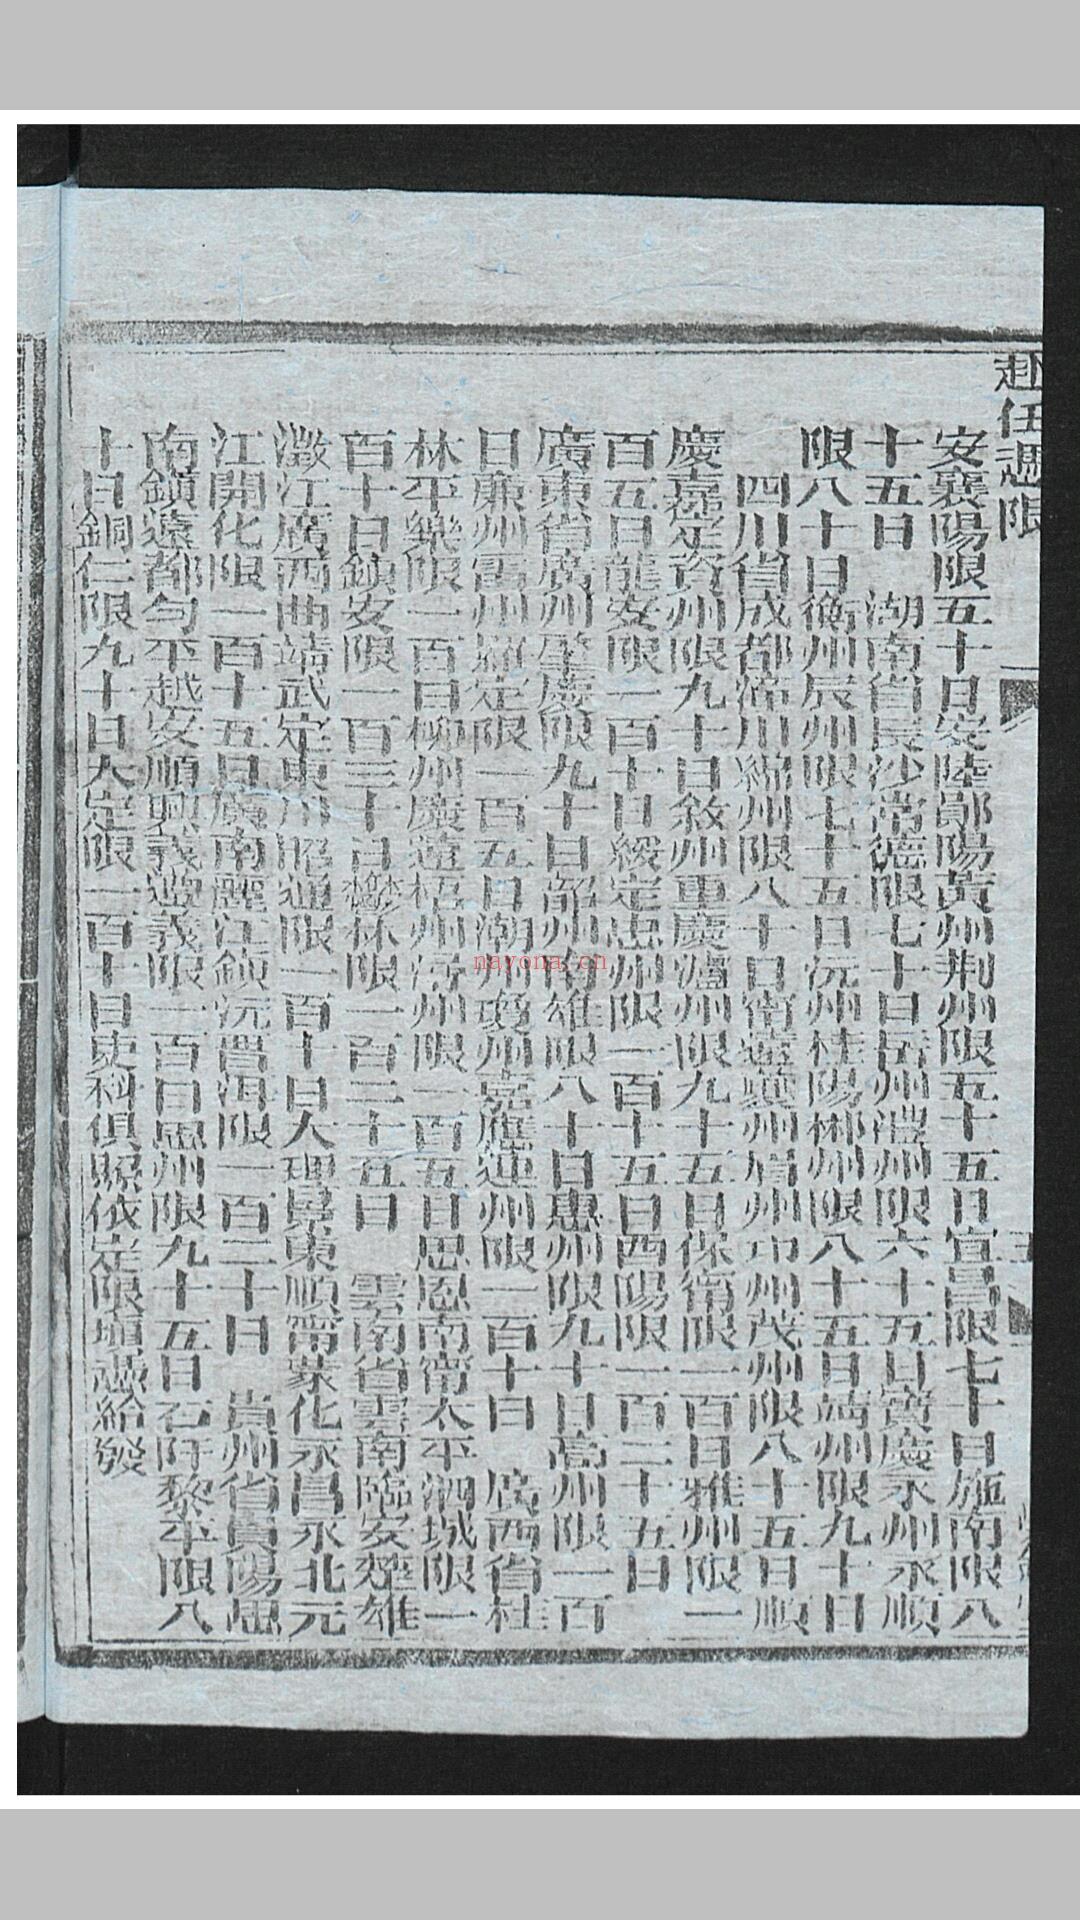 赴任憑限
安襄陽限五十日安陸鄖陽黃州荊州限五十五日宜昌限七十日施南限八
十五日　湖南省長沙常德限七十日岳州澧州限六十五日寶慶永州永順
限八十日衡州辰州限七十五日沅州桂陽郴州限八十五日靖州限九十日
四川省成都潼川綿州限八十日甯遠夔州眉州邛州茂州限八十五日順
慶嘉定資州限九十日敘州重慶瀘州限九十五日保甯限一百日雅州限一
百五日龍安限一百十日綏定忠州限一百十五日酉陽限一百二十五日
廣東省廣州肇慶限九十日韶州南雄限八十日惠州限九十日高州限一百
日廉州雷州羅定限一百五日潮州瓊州嘉應連州限一百十日　廣西省桂
林平樂限一百日柳州慶遠梧州潯州限一百五日思恩南甯太平泗城限一
百十日鎮安限一百三十日鬱林限一百二十五日　雲南省雲南臨安楚雄
澂江廣西曲靖武定東川昭通限一百十日大理景東順甯蒙化永昌永北元
江開化限一百十五日廣南麗江鎮沅普洱限一百二十日　貴州省貴陽思
南鎮遠都勻平越安順興義遵義限一百日思州限九十五日石阡黎平限八
十日銅仁限九十日大定限一百十日吏科俱照依定限填憑給發
nayona.cn